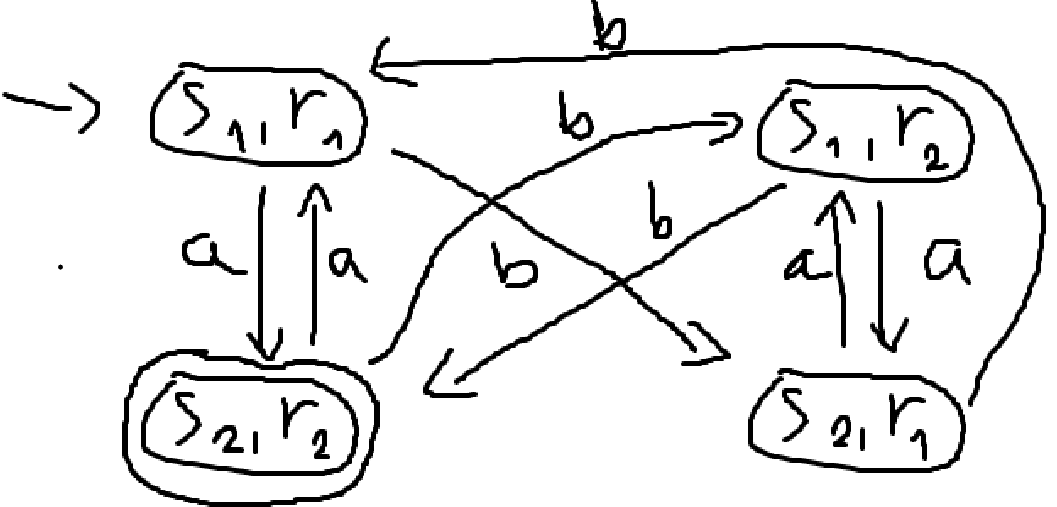 b
s₁, r₁
b
s₁, r₂
b
a
a
b
a
a
s₂, r₂
s₂, r₁